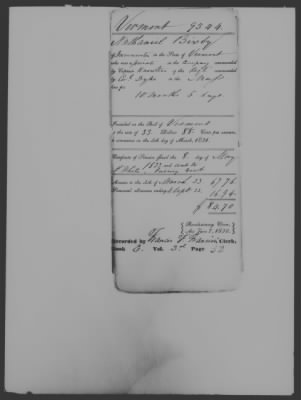 Vermont 9344
Nathaniel Bixby
of in the State of Vermont
who was a private in the Company commanded
by Captain of the Regt. commanded
by Col. Dyke in the Mass
line for
10 months 5 days
Inscribed on the Roll of Vermont
at the rate of 33 Dollars 88 Cents per annum,
to commence on the 4th day of March, 1831.
Certificate of Pension issued the 8 day of May
1833 and sent to
P. White,
Arrears to the 4th of March 33 67.76
Semi-anl. allowance ending 4 Sept 33 16.94
$ 84.70
Revolutionary Claim,
Act June 7, 1832.
Recorded by Clerk,
Book E. Vol. 3d Page 52